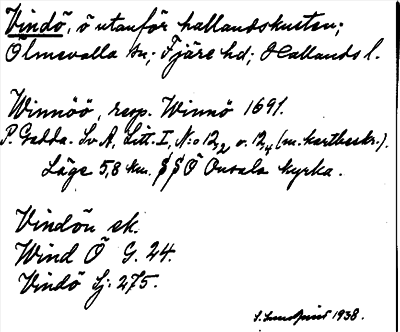 Vindö, ö utanför hallandskusten;
Ölmevalla sn; Fjäre hd; Hallands l.
Winnöö, resp. Winnö 1691.
P. Gedda. Sv A, Litt. I, N:o 12,2 o. 12,4 (m. kartbeskr.).
Läge 5,8 km. SSÖ Onsala kyrka.
Vindön ek.
Wind Ö G. 24.
Vindö Lj. 275.
S. Lundqvist 1938.